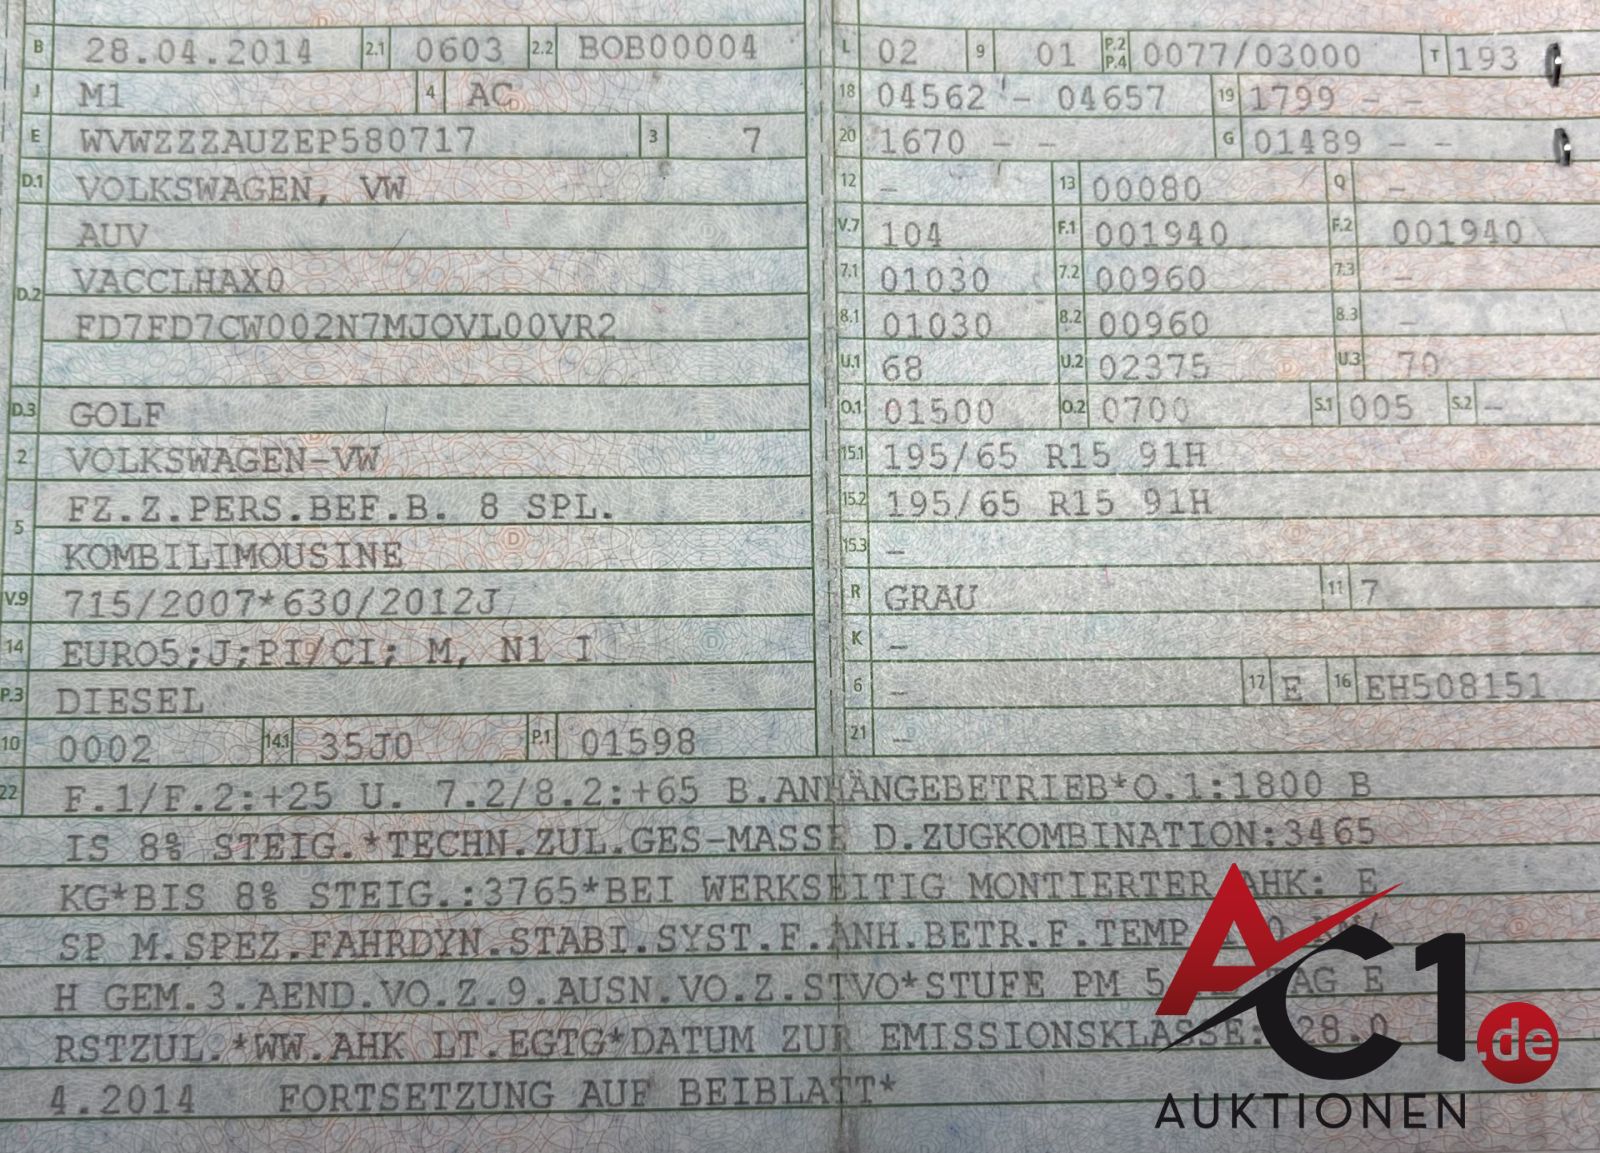 B 28.04.2014 2.1 0603 2.2 BOB00004
J M1 4 AC
E WVWZZZAUZEP580717 3 7
D.1 VOLKSWAGEN, VW
AUV
D.2 VACCLHAX0
FD7FD7CW002N7MJOVL00VR2
D.3 GOLF
2 VOLKSWAGEN-VW
5 FZ.Z.PERS.BEF.B. 8 SPL.
KOMBILIMOUSINE
V.9 715/2007*630/2012J
14 EURO5;J;PI/CI; M, N1 I
P.3 DIESEL
10 0002 14.1 35J0 P.1 01598
L 02 9 01 P.2 P.4 0077/03000 T 193
18 04562 - 04657 19 1799 - -
20 1670 - - G 01489 - -
12 - 13 00080 Q -
V.7 104 F.1 001940 F.2 001940
7.1 01030 7.2 00960 7.3 -
8.1 01030 8.2 00960 8.3 -
U.1 68 U.2 02375 U.3 70
O.1 01500 O.2 0700 S.1 005 S.2 -
15.1 195/65 R15 91H
15.2 195/65 R15 91H
15.3 -
R GRAU 11 7
K -
6 - 17 E 16 EH508151
21 -
22 F.1/F.2:+25 U. 7.2/8.2:+65 B.ANHÄNGEBETRIEB*O.1:1800 B
IS 8% STEIG.*TECHN.ZUL.GES-MASSE D.ZUGKOMBINATION:3465
KG*BIS 8% STEIG.:3765*BEI WERKSEITIG MONTIERTER AHK: E
SP M.SPEZ.FAHRDYN.STABI.SYST.F.ANH.BETR.F.TEMP
H GEM.3.AEND.VO.Z.9.AUSN.VO.Z.STVO*STUFE PM 5 TAG E
RSTZUL.*WW.AHK LT.EGTG*DATUM ZUR EMISSIONSKLASSE: 28.0
4.2014 FORTSETZUNG AUF BEIBLATT*
AC1.de
AUKTIONEN